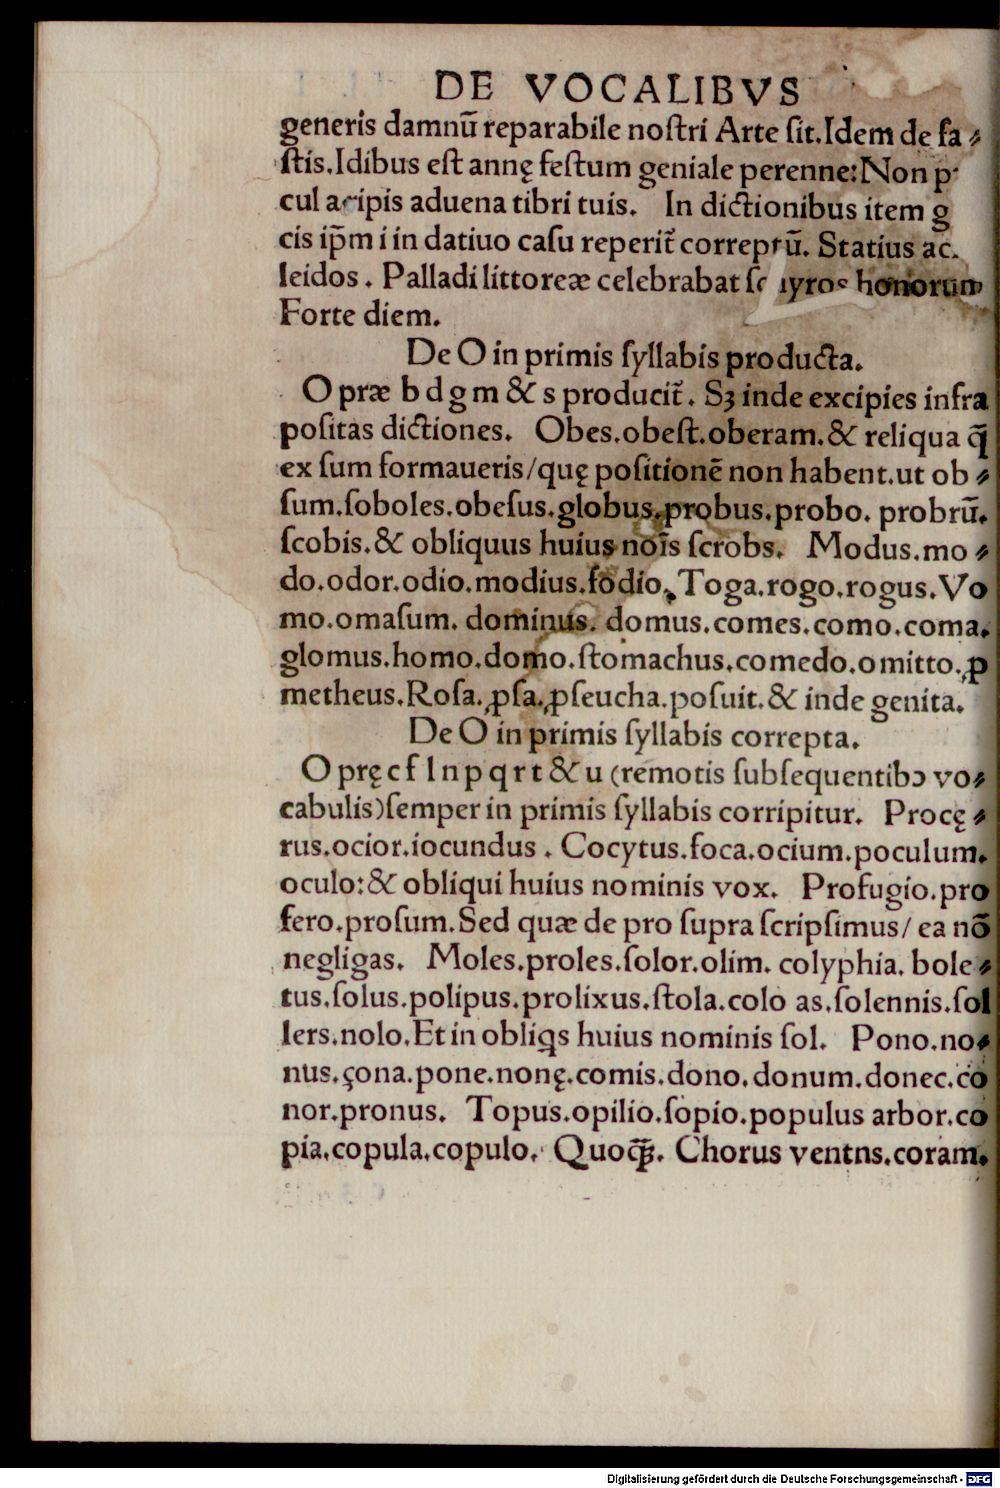 DE VOCALIBVS
generis damnū reparabile noſtri Arte ſit.Idem de fa⸗
ſtis.Idibus eſt annę feſtum geniale perenne:Non
cul aripis aduena tibri tuis. In dictionibus item
cis ip̄m i in datiuo caſu reperit̄ correptū. Statius
leidos . Palladi littoreæ celebrabat honorum
Forte diem.
De O in primis ſyllabis producta.
O præ b d g m & s producit̄ . Sꝫ inde excipies infra
poſitas dictiones. Obes.obeſt.oberam.& reliqua q̄
ex ſum formaueris/quę poſitionē non habent.ut ob⸗
ſum.ſoboles.obeſus.globus.probus.probo. probrū.
ſcobis.& obliquus huius noīs ſcrobs. Modus.mo⸗
do.odor.odio.modius.fodio. Toga.rogo.rogus.Vo
mo.omaſum. dominus. domus.comes.como.coma.
glomus.homo.domo.ſtomachus.comedo.omitto.ꝓ
metheus.Roſa.ꝓſa.ꝓſeucha.poſuit.& inde genita.
De O in primis ſyllabis correpta.
O prę c f l n p q r t & u (remotis ſubſequentibꝰ vo⸗
cabulis)ſemper in primis ſyllabis corripitur. Procę⸗
rus.ocior.iocundus . Cocytus.foca.ocium.poculum.
oculo:& obliqui huius nominis vox. Profugio.pro
fero.proſum.Sed quæ de pro ſupra ſcripſimus/ ea nō
negligas. Moles.proles.ſolor.olim. colyphia. bole⸗
tus.ſolus.polipus.prolixus.ſtola.colo as.ſolennis.ſol
lers.nolo.Et in obliqs huius nominis ſol. Pono.no⸗
nus.çona.pone.nonę.comis.dono.donum.donec.co
nor.pronus. Topus.opilio.ſopio.populus arbor.co
pia.copula.copulo. Quoqꝫ. Chorus ventns.coram.
Digitalisierung gefördert durch die Deutsche Forschungsgemeinschaft - DFG